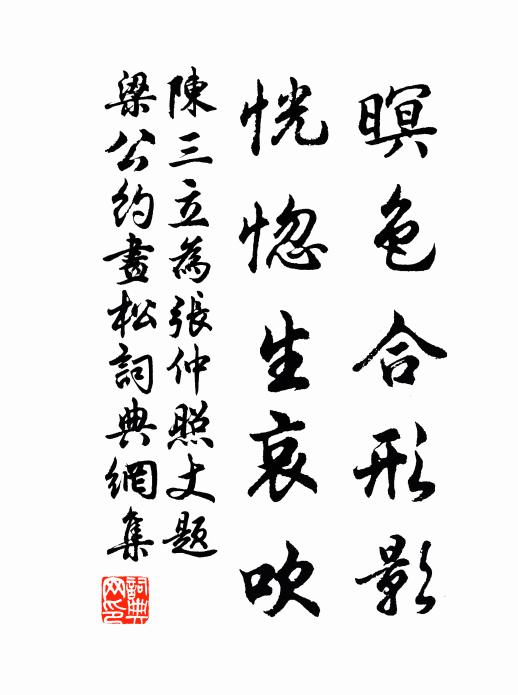 暝色合形影
恍惚生哀吹
陳三立為張仲照丈題
梁公約畫松詞典網集
詞典网印